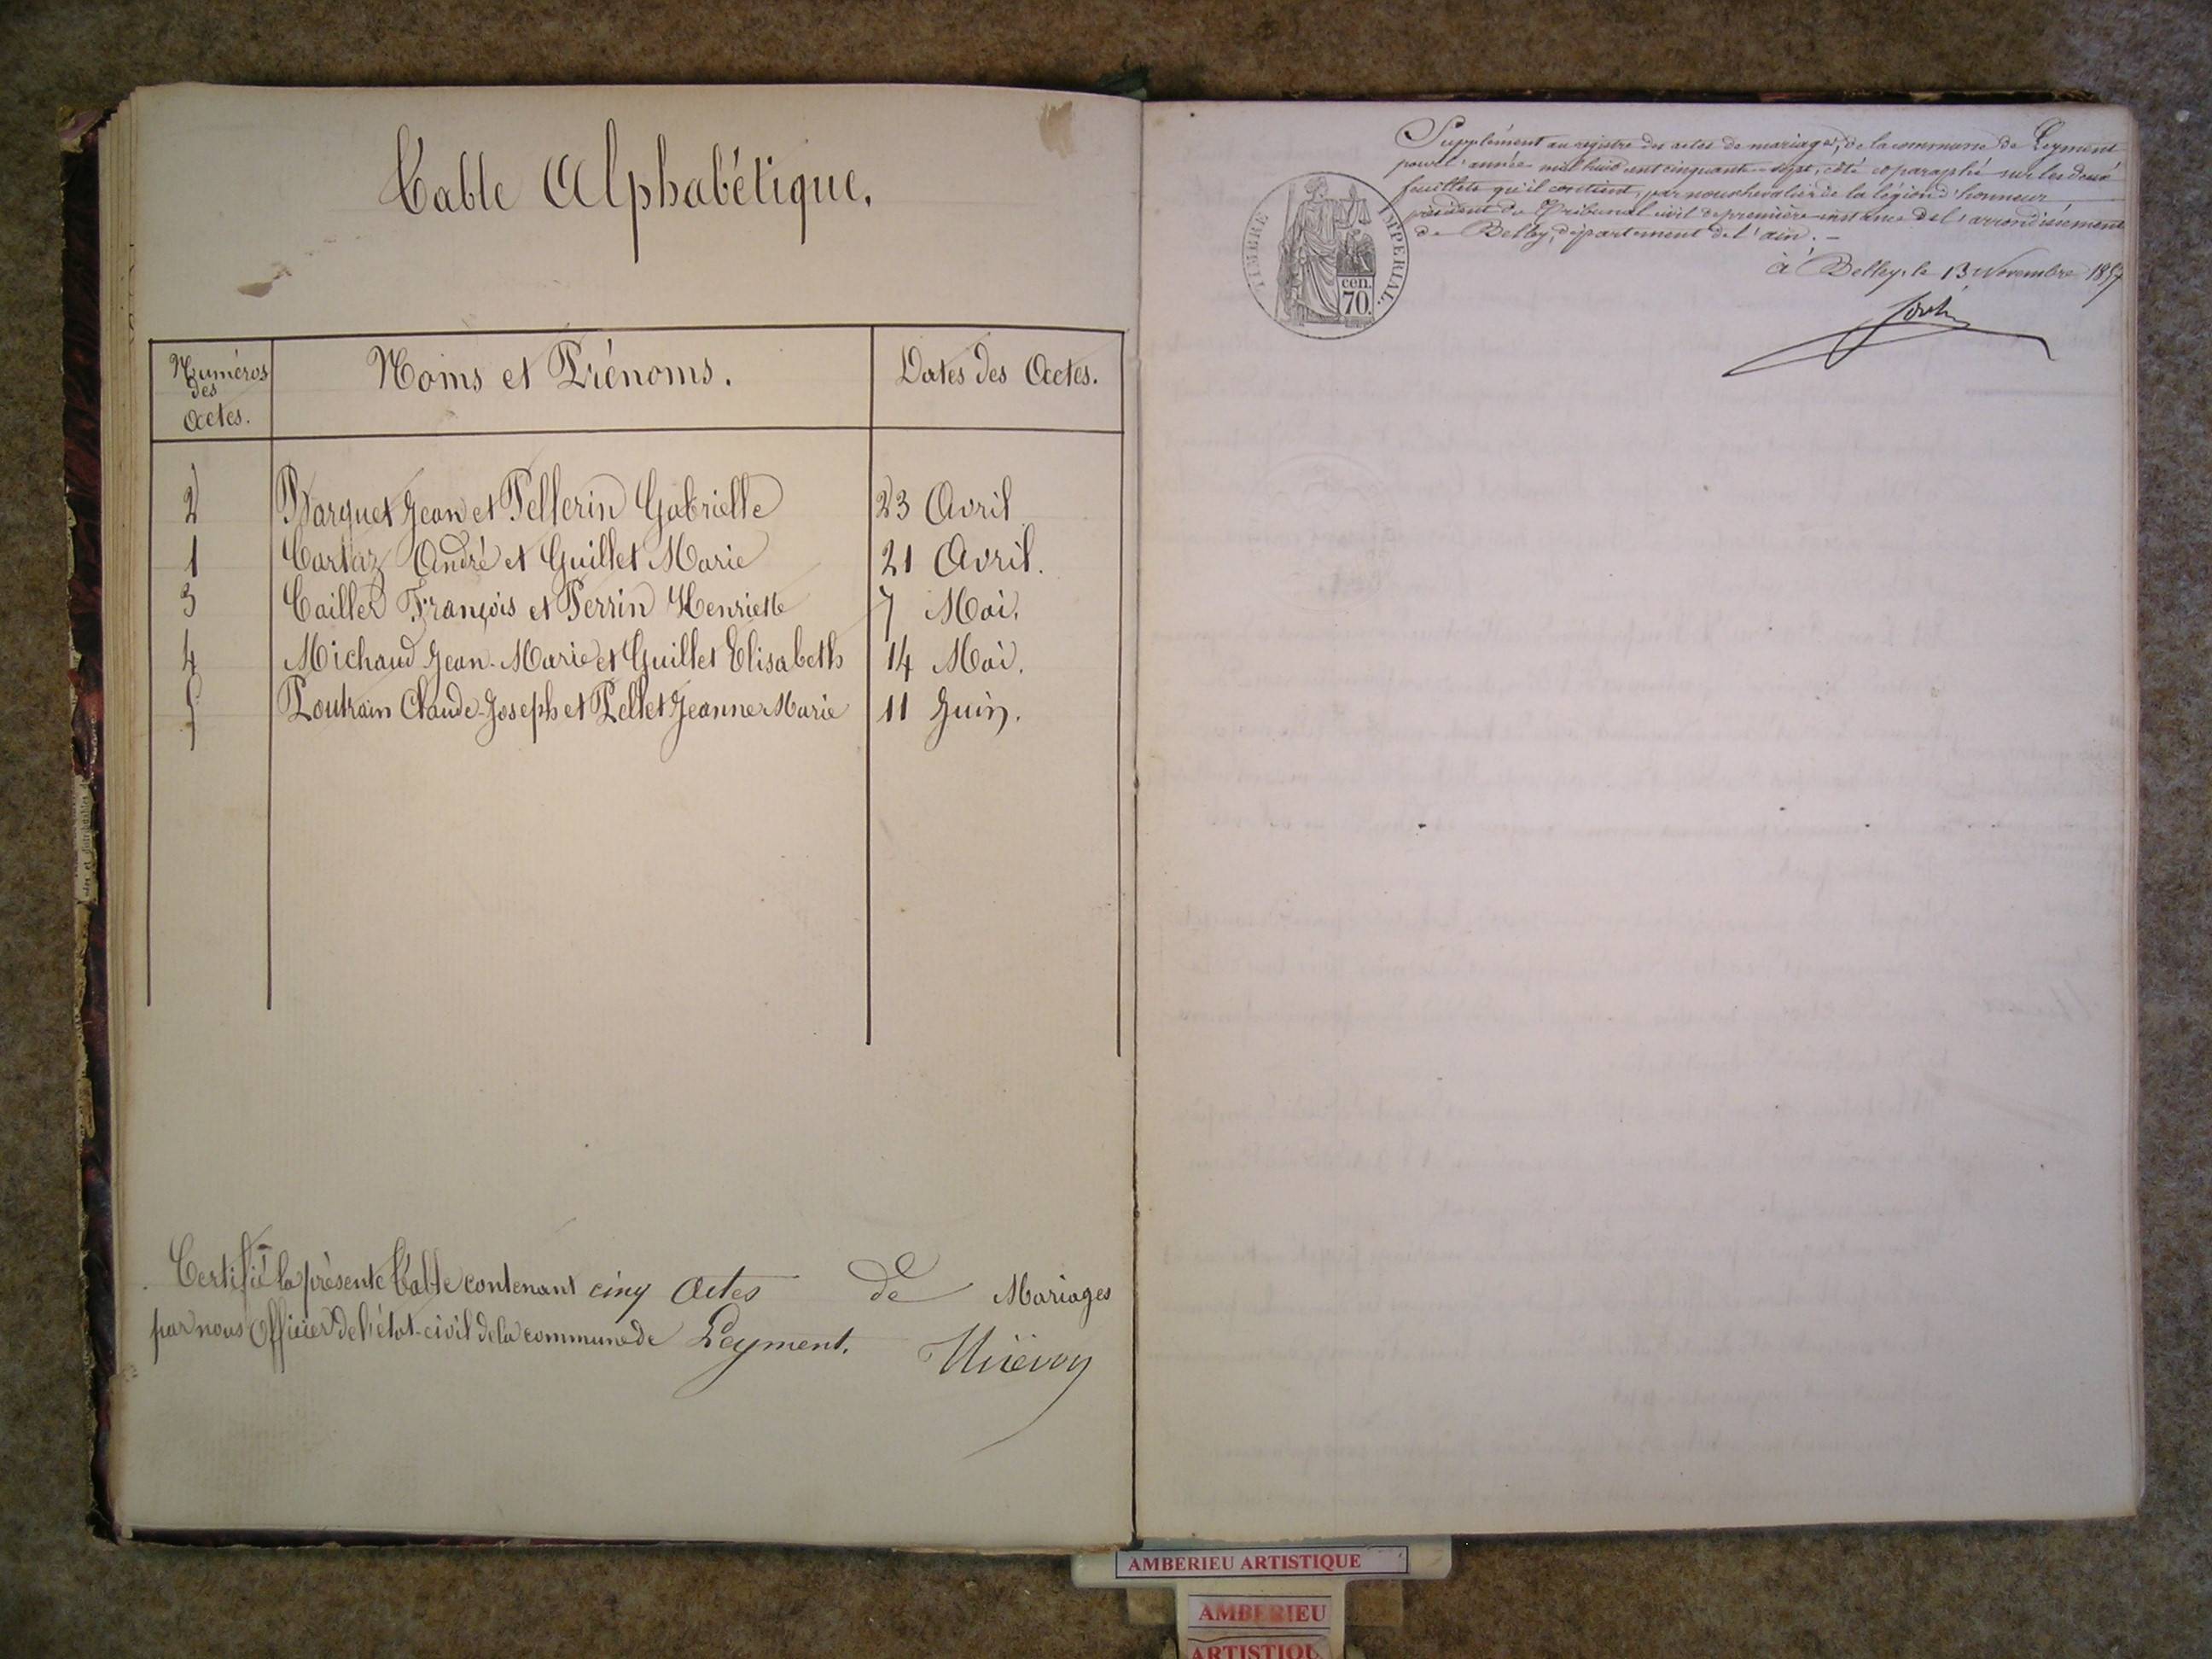 Table Alphabétique.
Numéros des Actes.
Noms et Prénoms.
Dates des Actes.
2 Barquet Jean et Pellerin Gabrielle 23 Avril
1 Cartaz André et Guillet Marie 21 Avril.
3 Cailler François et Perrin Henriette 7 Mai.
4 Michaud Jean-Marie et Guillet Elisabeth 14 Mai.
5 Poutrain Claude-Joseph et Pellet Jeanne Marie 11 Juin.
Certifié la présente Table contenant cinq Actes de Mariages
par nous Officier de l'état-civil de la commune de Leyment.
Supplément au registre des actes de mariages, de la commune de Leyment
pour l'année mil huit cent cinquante-sept, côté et paraphé sur les deux
feuillets qu'il contient, par nous chevalier de la légion d'honneur
président du Tribunal civil de première instance de l'arrondissement
de Belley, département de l'ain. -
à Belley, le 13 Novembre 1857
TIMBRE IMPERIAL.
cen.
70.
AMBERIEU ARTISTIQUE
AMBERIEU
ARTISTIQU